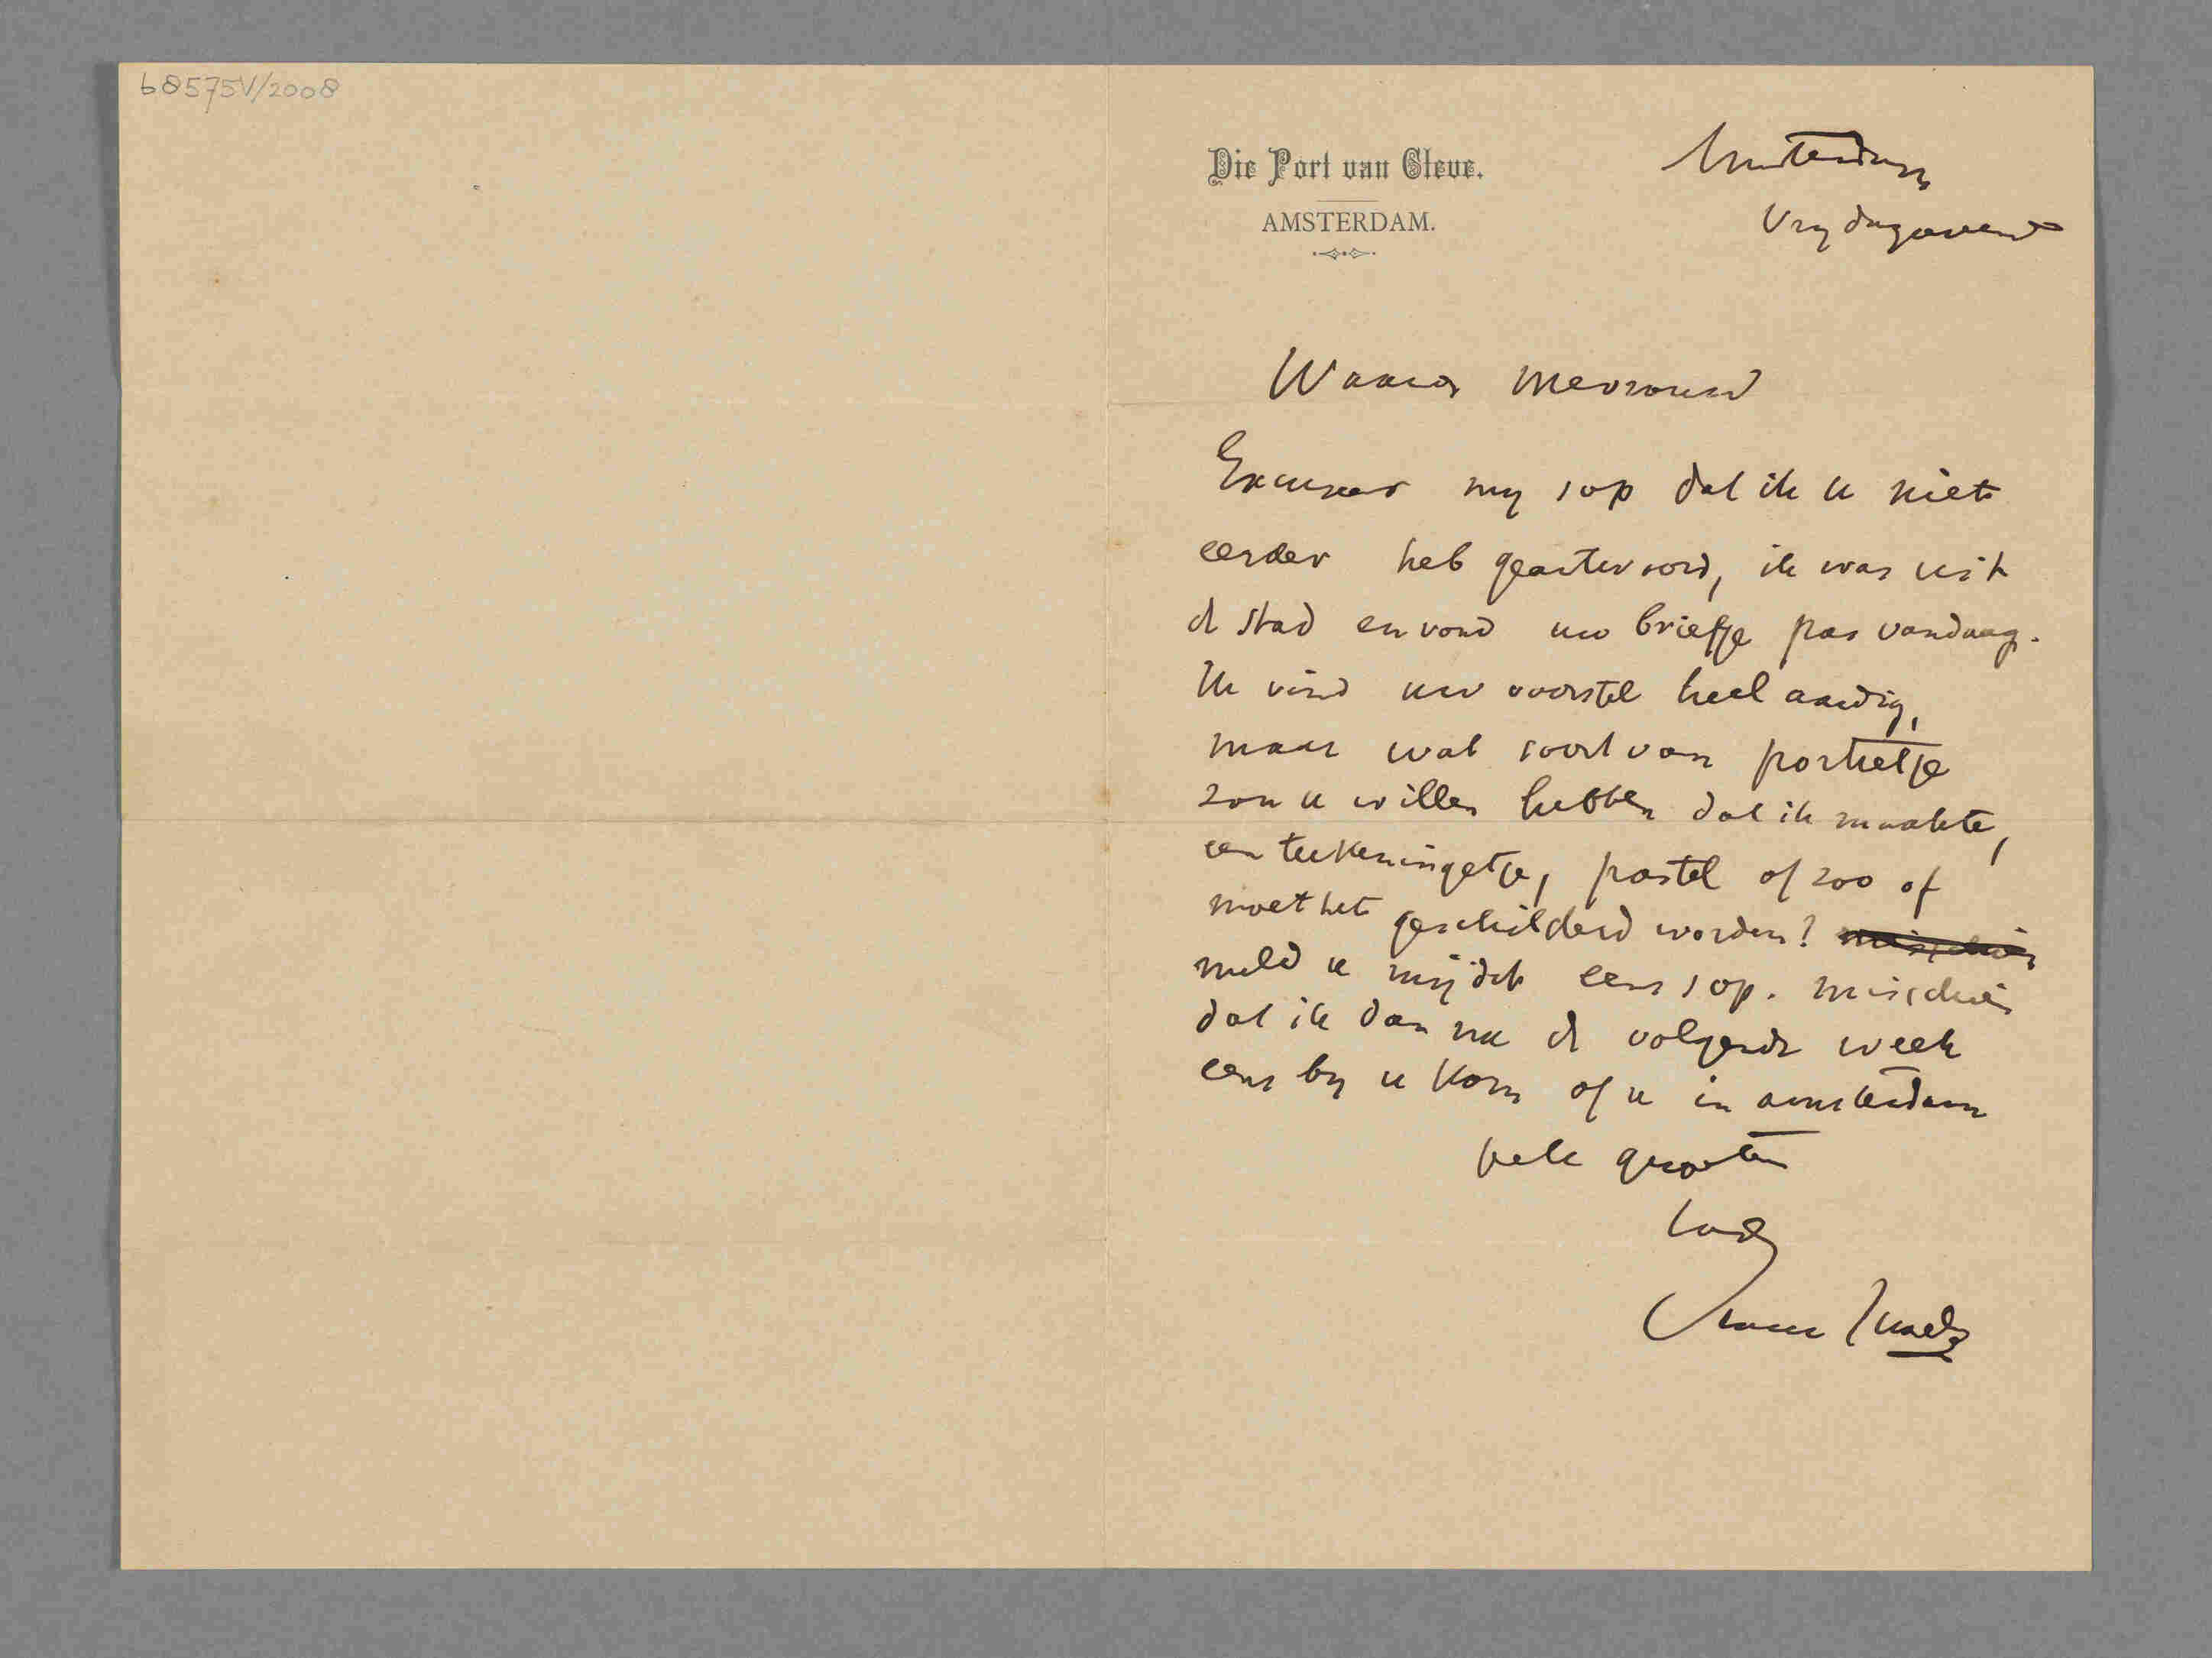 b8575V/2008
Die Port van Cleve.
AMSTERDAM.
Amsterdam
Vrydagavend
Waarde Mevrouw
Excuseer my sop dat ik u niet
eerder heb geantwoord, ik was uit
de stad en vond uw briefje pas vandaag.
Ik vind uw voorstel heel aardig,
maar wat soort van portretje
zou u willen hebben dat ik maakte,
een teekeningetje, pastel of zoo of
moet het geschilderd worden? misschien
meld u mij dit eens sop. misschien
dat ik dan na de volgende week
eens by u kom of u in amsterdam
vele groeten
Isaac Israels